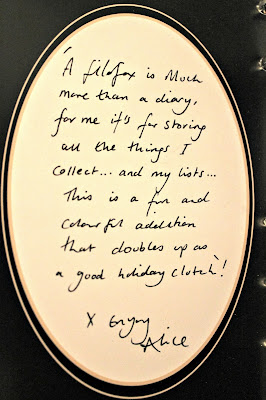 'A filofax is Much
more than a diary,
for me it's for storing
all the things I
collect... and my lists...
This is a fun and
colourful addition
that doubles up as
a good holiday clutch'!
X Enjoy
Alice